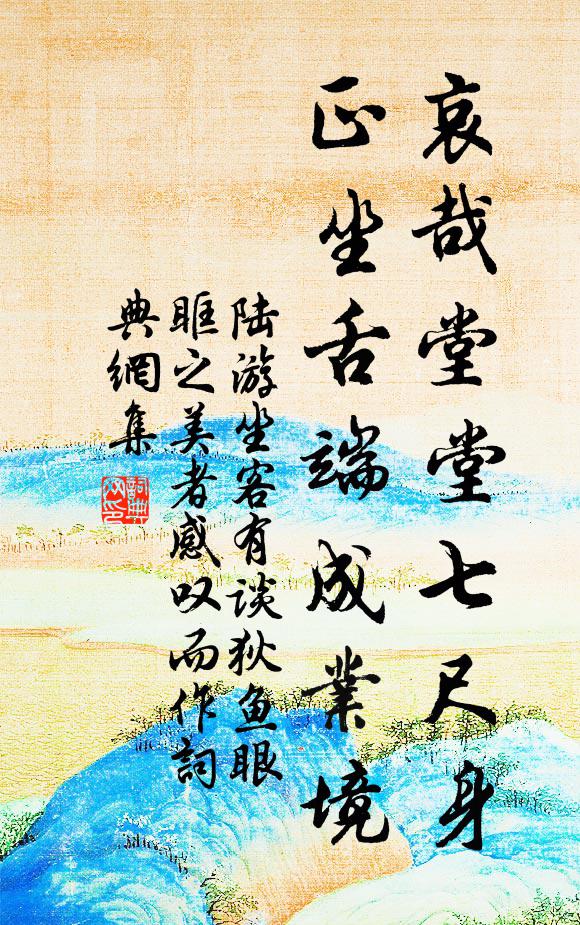 哀哉堂堂七尺身
正坐舌端成業境
陆游坐客有谈狄鱼眼
眶之美者感叹而作詞
典網集